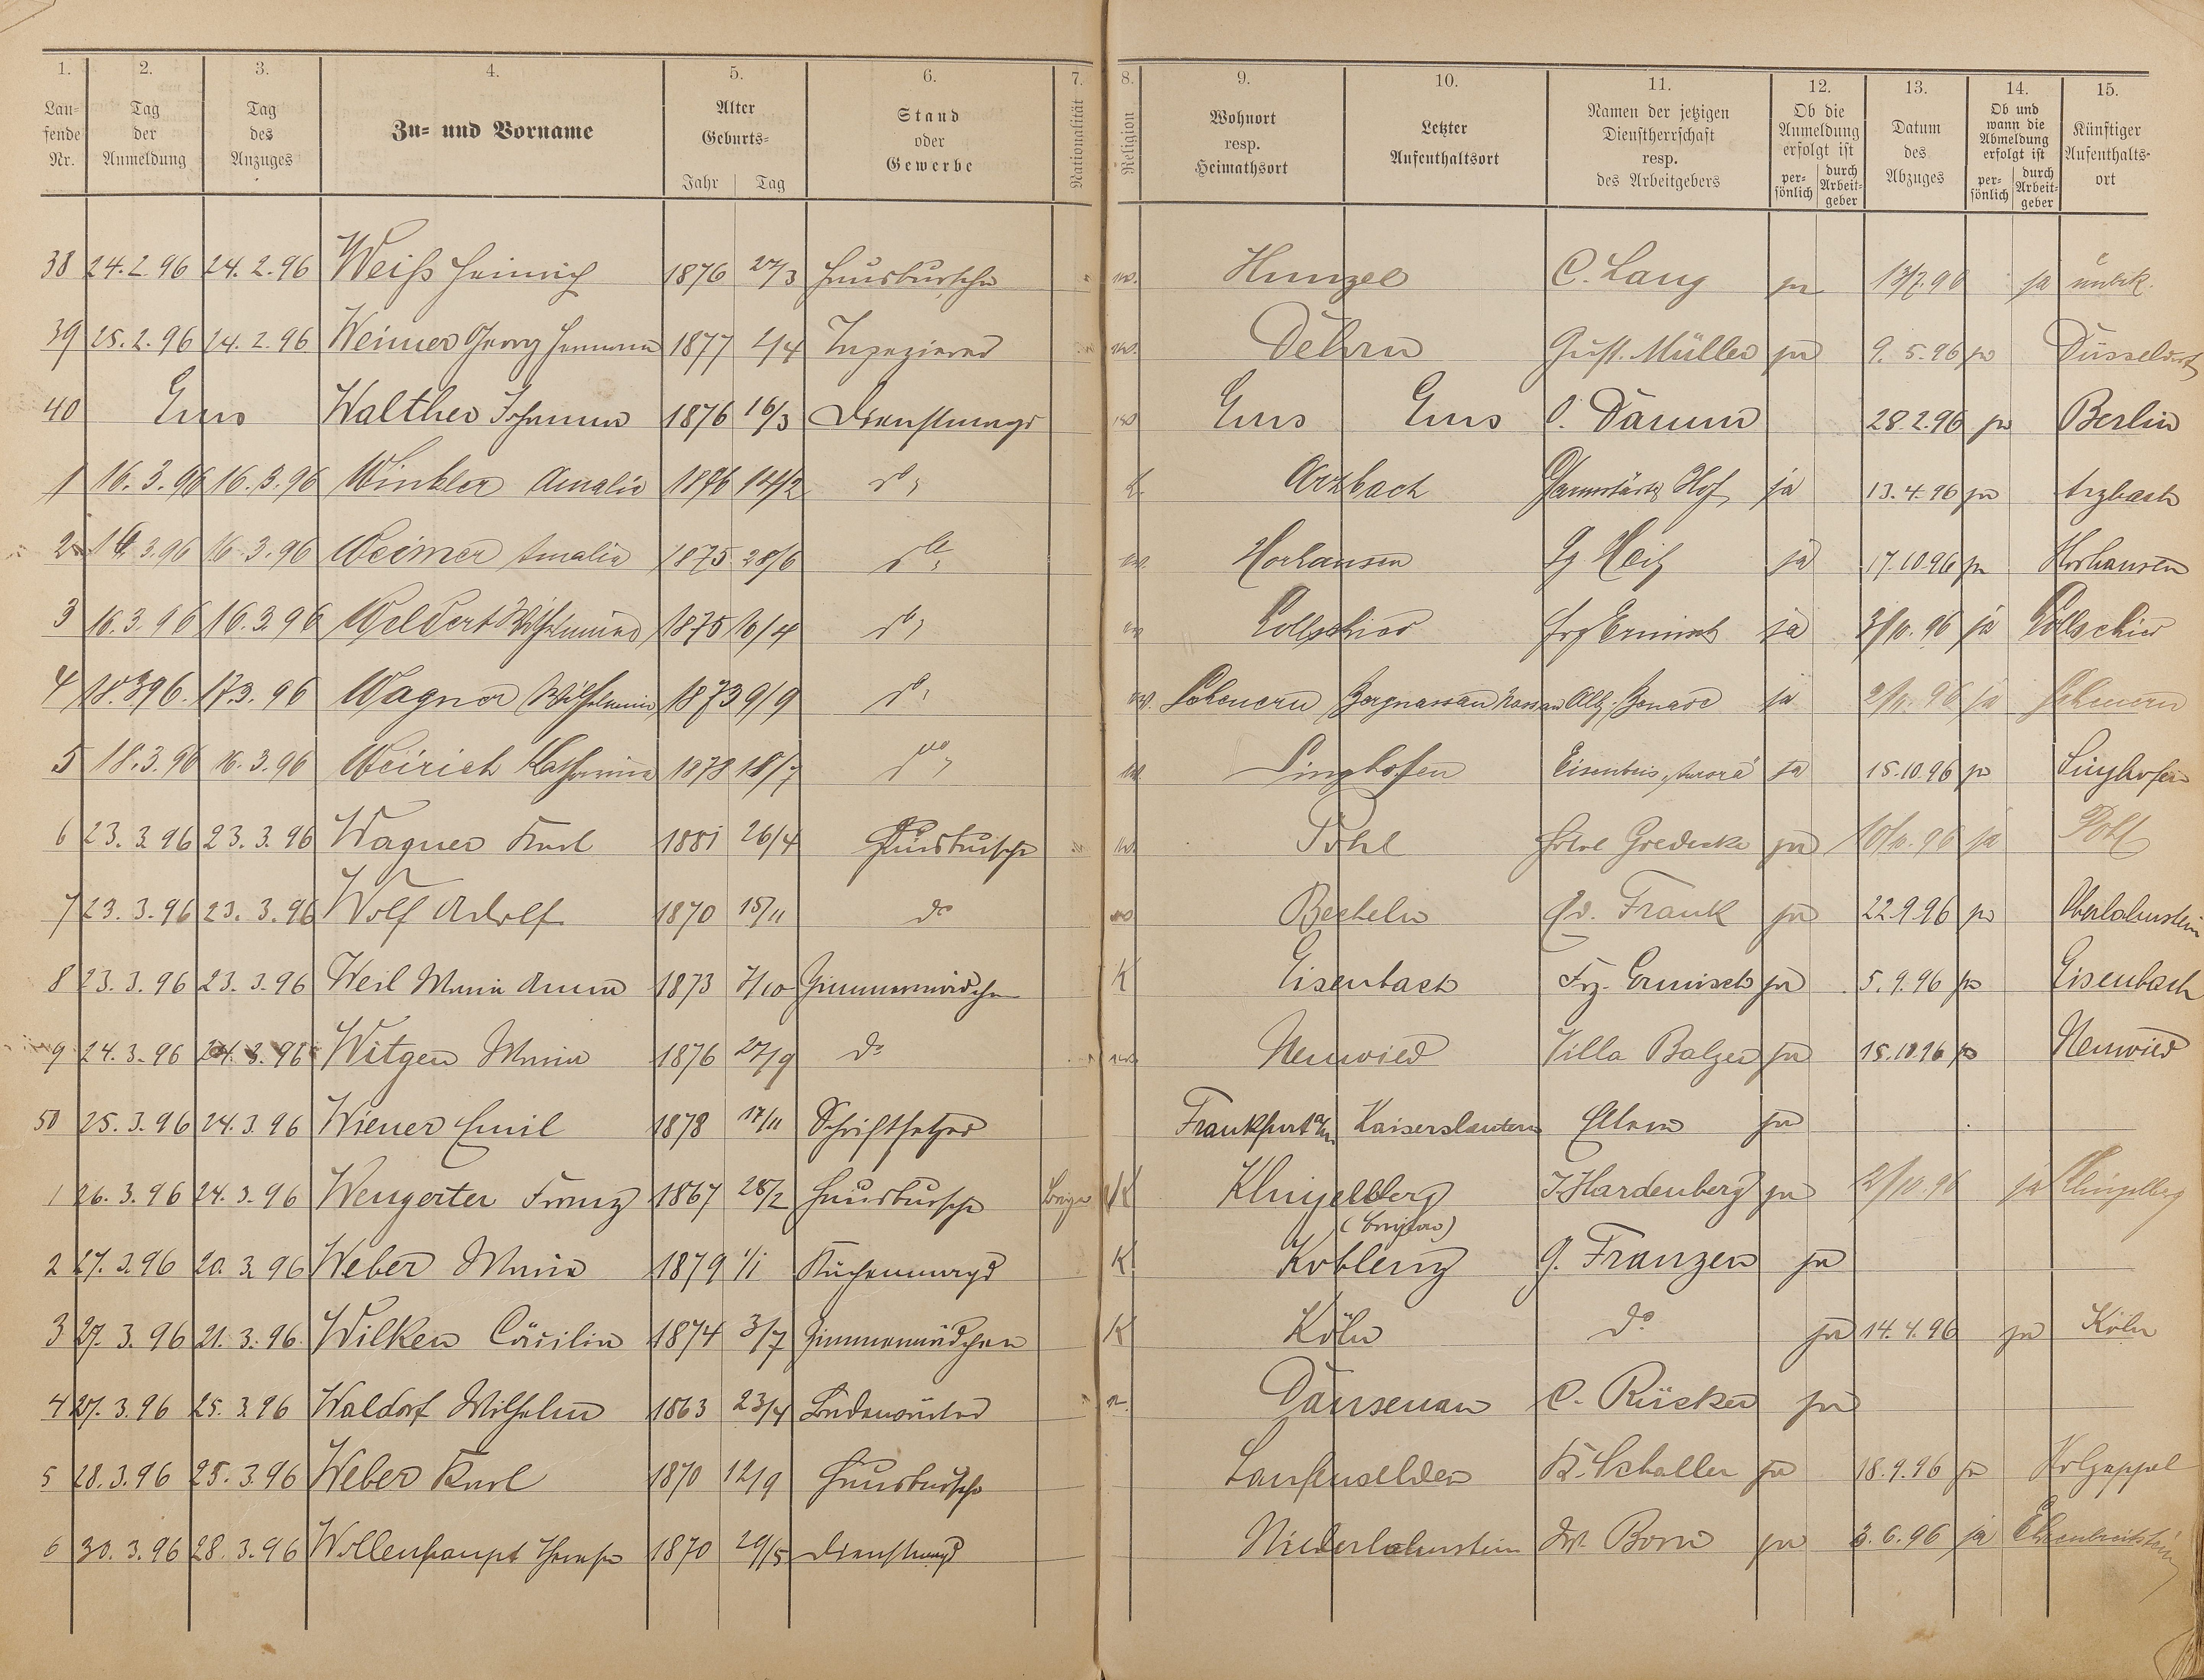 1. 2. 3. 4. 5. 6. 7. 8. 9. 10. 11. 12. 13. 14. 15.
Lau-fende Nr. Tag der Anmeldung Tag des Anzuges Zu- und Vorname Alter Geburts- Jahr Tag Stand oder Gewerbe Nationalität Religion Wohnort resp. Heimathsort Letzter Aufenthaltsort Namen der jetzigen Dienstherrschaft resp. des Arbeitgebers Ob die Anmeldung erfolgt ist per-sönlich durch Arbeit-geber Datum des Abzuges Ob und wann die Abmeldung erfolgt ist per-sönlich durch Arbeit-geber Künftiger Aufenthalts-ort
38 24.2.96 24.2.96 Weiß Heinrich 1876 27/3 Hausbursche Hunzel C. Lang ja ja unbek.
39 25.2.96 24.2.96 Weimer Georg Hermann 1877 2/4 Tapezierer Dehrn Gust. Müller ja 9.5.96 ja Düsseldorf
40 Ems Walther Johanna 1876 16/3 Dienstmagd Ems Ems 28.2.96 ja Berlin
1 16.3.96 16.3.96 Winkler Amalie 1876 K. Arzbach Darmstädter Hof ja 13.4.96 ja Arzbach
2 16.3.96 Weimer Amalie 1875 28/6 Horhausen ja 17.10.96 ja Horhausen
3 16.3.96 16.3.96 Weldert Wilhelmine 1875 Frz Ermisch ja 96 ja
4 18.3.96. 17.3.96 Wagner Wilhelmine 1873 9/9 Bergnassau Nassau ja ja
5 18.3.96 16.3.96 Weirich Katharina 1878 18/7 Singhofen "Aurora" ja 15.10.96 ja Singhofen
6 23.3.96 23.3.96 Wagner Karl 1881 26/4 Hausbursche Pohl Hotel ja ja Pohl
7 23.3.96 23.3.96 Wolf Adolf 1870 15/11 do Becheln Frank ja 22.9.96 ja Oberlahnstein
8 23.3.96 23.3.96 Weil Maria Anna 1873 7/10 Zimmermädchen K Eisenbach Frz. Ermisch ja 5.9.96 ja Eisenbach
9 24.3.96 24.3.96 Witgen Maria 1876 27/9 do Neuwied Villa Balzer ja 15.10.96 ja Neuwied
50 25.3.96 24.3.96 Wiener Emil 1878 17/11 Schriftsetzer Frankfurt a/M Kaiserslautern ja
1 26.3.96 24.3.96 Wengerter Franz 1867 28/2 Hausbursche K Klingelberg J. Hardenberg ja ja Klingelberg
2 27.3.96 20.3.96 Weber Maria 1879 1/1 Küchenmagd K Koblenz G. Franzen ja
3 27.3.96 21.3.96. Wilken Cäcilia 1874 3/7 Zimmermädchen K Köln do ja 14.4.96 ja Köln
4 27.3.96 25.3.96 Waldorf Wilhelm 1863 23/4 Dausenau C. Rücker ja
5 28.3.96 25.3.96 Weber Karl 1870 12/9 Hausbursche Laufenselden K. Schaller ja 18.9.96 ja Holzappel
6 30.3.96 28.3.96 Wollenhaupt Therese 1870 29/5 Dienstmagd Niederlahnstein Born ja 3.6.96 ja Ehrenbreitstein